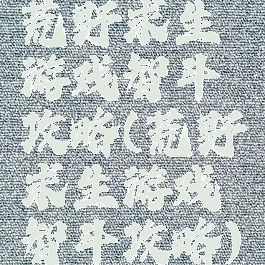 荒野求生
游戏犀牛
攻略(荒野
求生游戏
犀牛攻略)